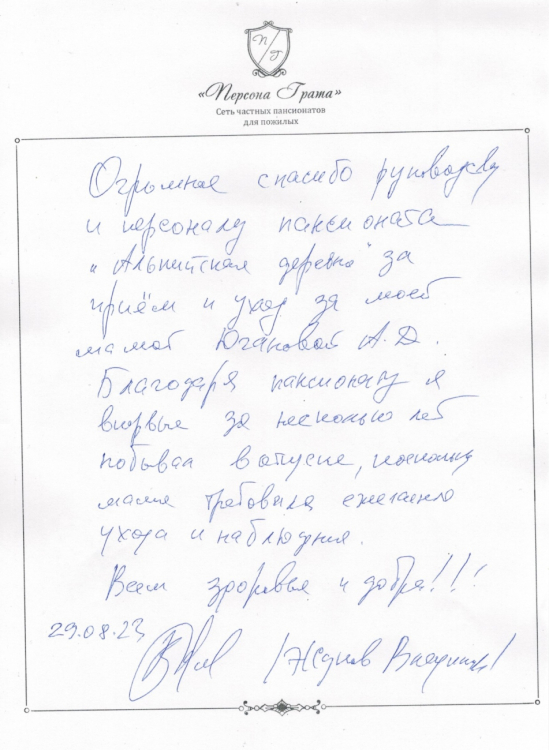 П/Г
«Персона Грата»
Сеть частных пансионатов
для пожилых
Огромное спасибо руководству
и персоналу пансионата
"Альпийская деревня" за
приём и уход за моей
мамой А.Д.
Благодаря пансионату я
впервые за несколько лет
побывал в отпуске, поскольку
мама требовала ежечасно
ухода и наблюдения.
Всем здоровья и добра!!!
29.08.23